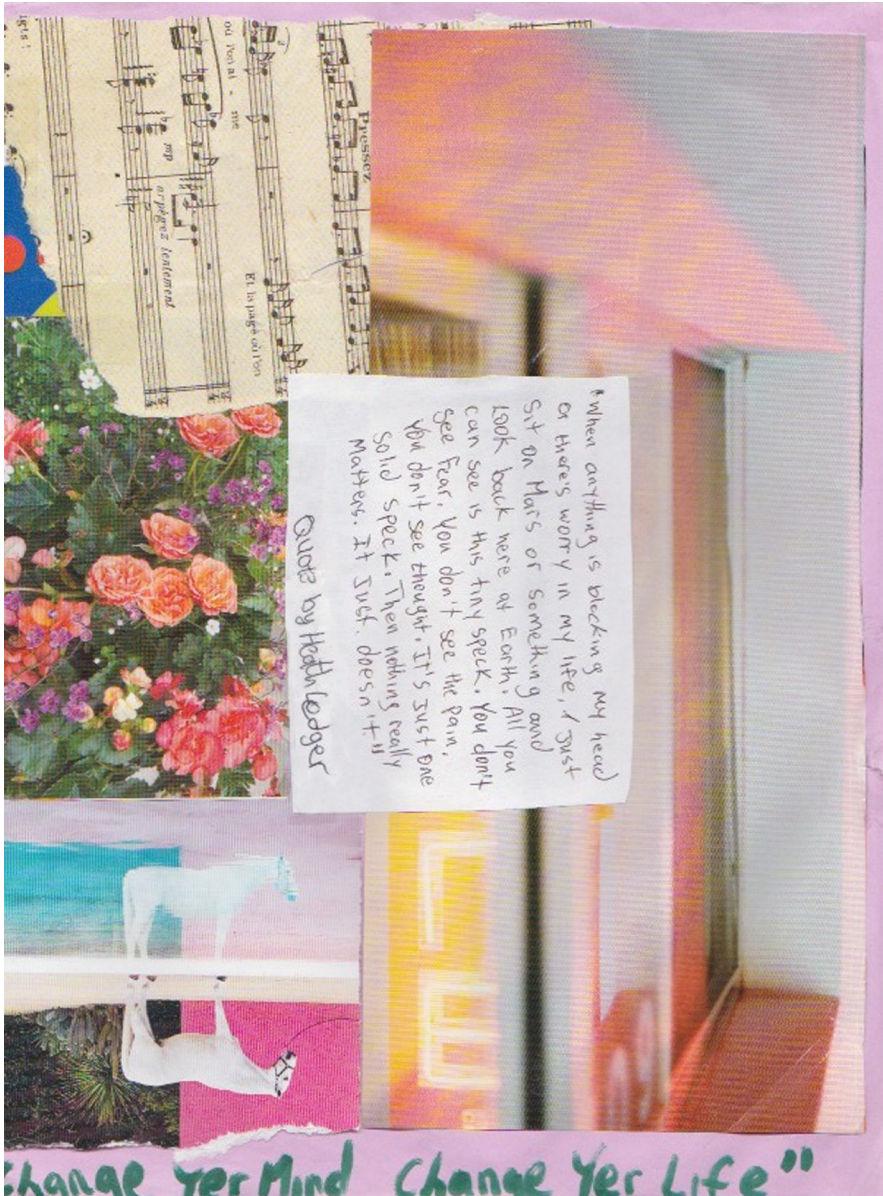 igts!
où l'on ai - me
mp
arpégez lentement
Pressez
Et la page où l'on
"When anything is blocking my head
or there's worry in my life, I just
sit on Mars or something and
Look back here at Earth. All you
can see is this tiny speck. You don't
see fear. You don't see the pain.
You don't see thought. It's just one
solid speck. Then nothing really
Matters. It just. doesn't"
Quote by Heath Ledger
Change Yer Mind Change Yer Life"